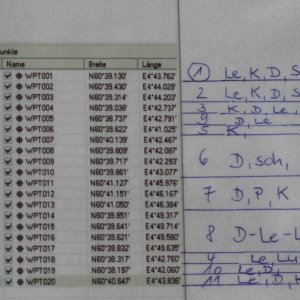 unkte
Name Breite Länge
WPT001 N60°39.130' E4°43.762'
WPT002 N60°39.430' E4°44.029'
WPT003 N60°39.314' E4°44.203'
WPT004 N60°39.036' E4°42.737'
WPT005 N60°38.737' E4°42.791'
WPT006 N60°39.622' E4°41.025'
WPT007 N60°40.139' E4°42.467'
WPT008 N60°39.809' E4°42.087'
WPT009 N60°39.717' E4°42.293'
WPT010 N60°39.861' E4°43.077'
WPT011 N60°41.127' E4°45.976'
WPT012 N60°41.151' E4°46.167'
WPT013 N60°41.050' E4°46.384'
WPT014 N60°39.851' E4°49.317'
WPT015 N60°39.641' E4°49.714'
WPT016 N60°39.621' E4°49.580'
WPT017 N60°39.832' E4°49.635'
WPT018 N60°39.317' E4°42.760'
WPT019 N60°38.197' E4°42.060'
WPT020 N60°40.647' E4°43.836'
1 Le, K, D, S
2 Le, K, D, S
3 K, D, Le,
4 D, Le
5 K,
6 D, Sch,
7 D, P, K
8 D-Le-L
9 Le, Lu
10 Le, D,
11 Le, D,